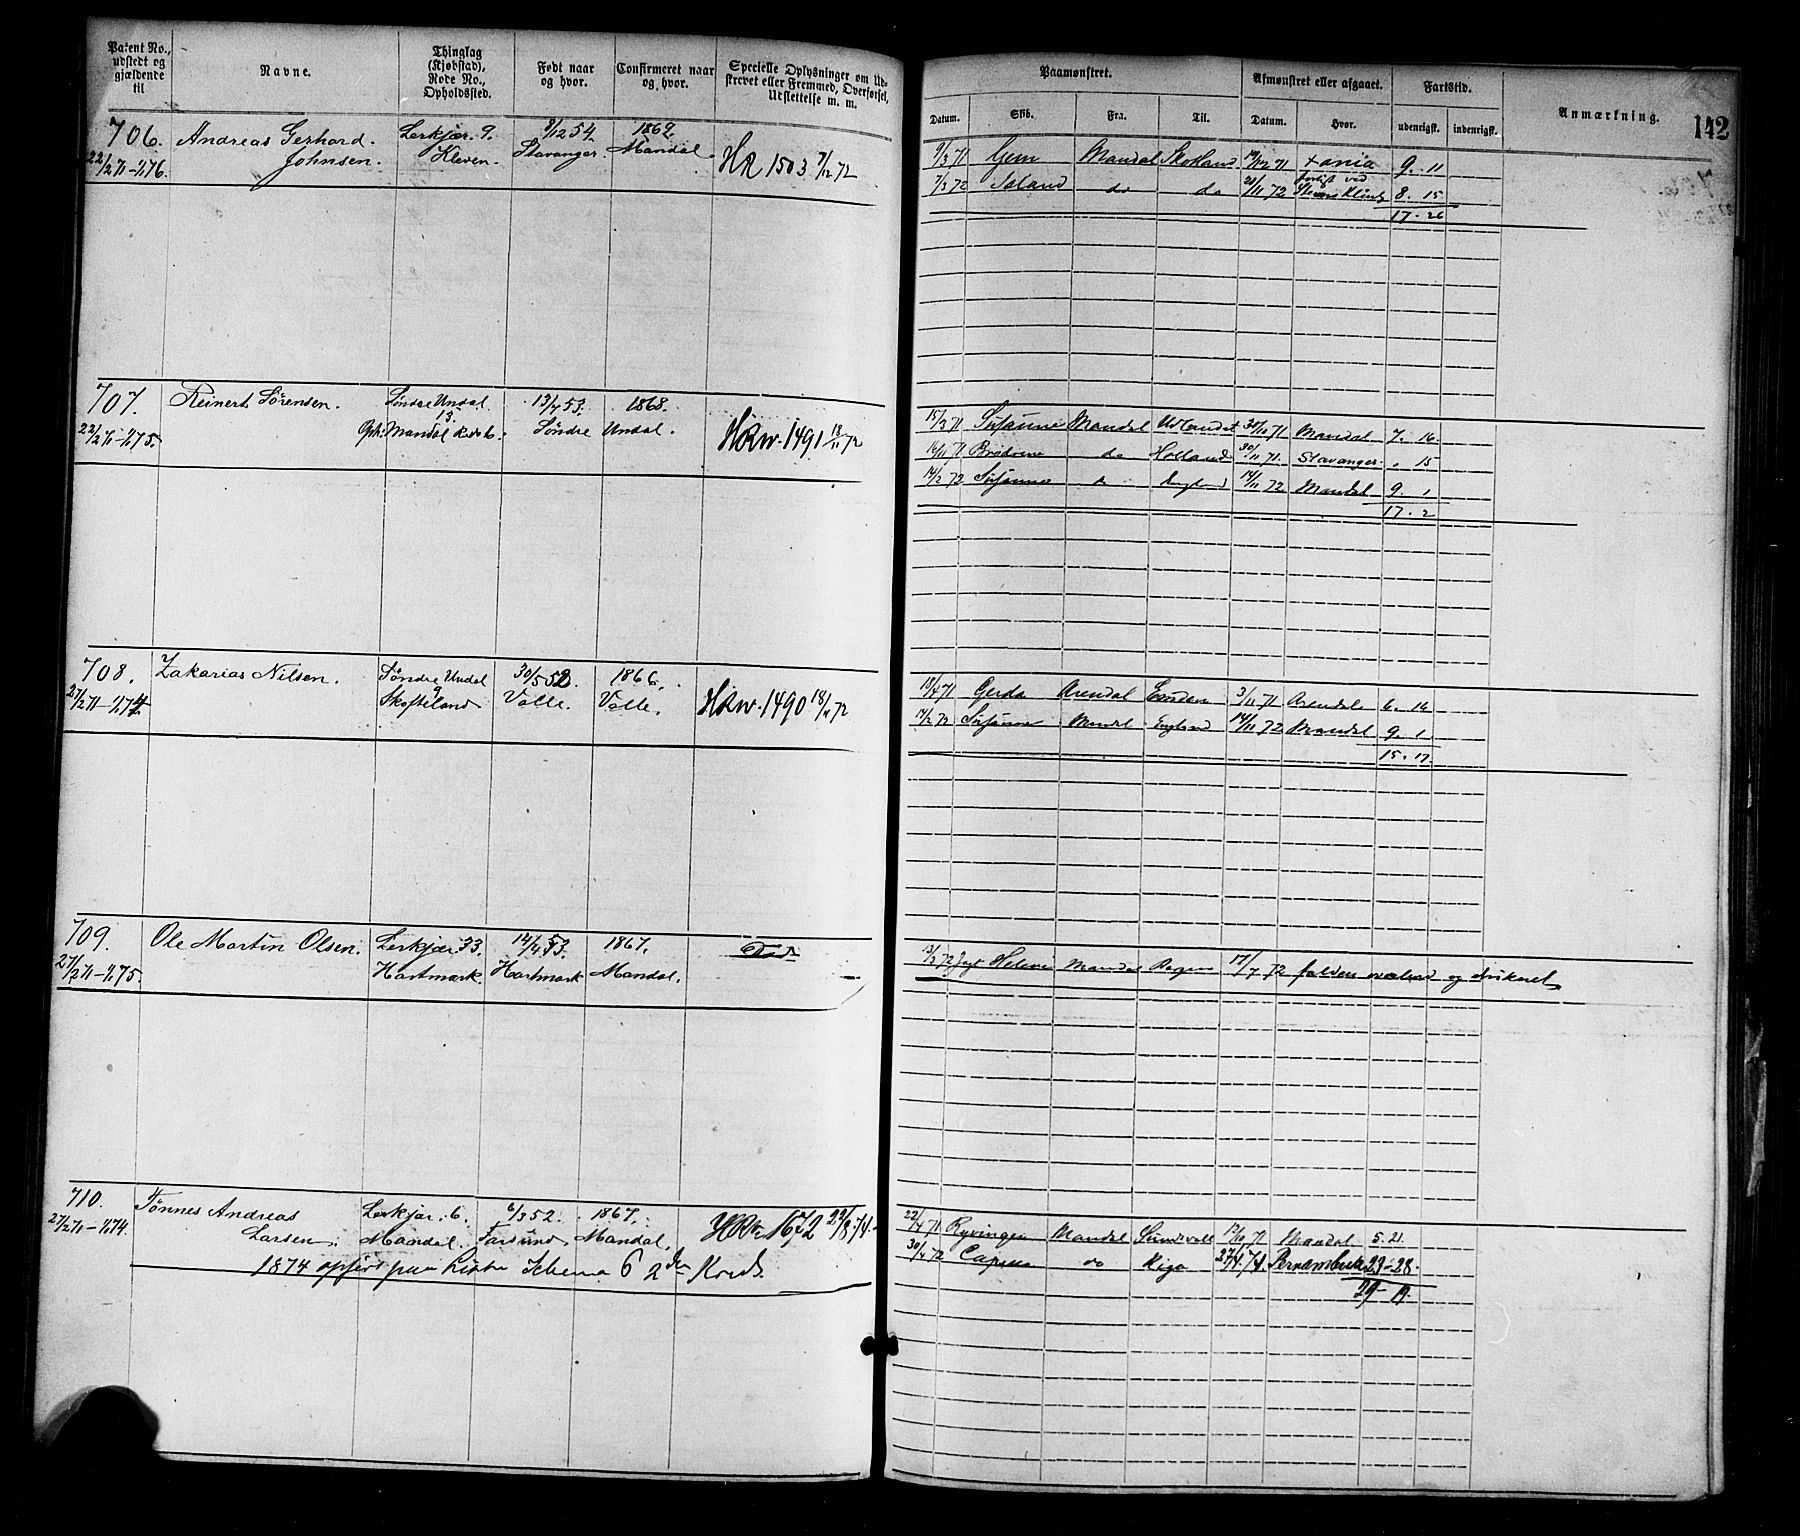 Patent No., udstedt og gjældende til
Navne.
Thinglag (Kjøbstad), Rode No., Opholdssted.
Født naar og hvor.
Confirmeret naar og hvor.
Specielle Oplysninger om Udskrevet eller Fremmed, Overførsel, Udslettelse m. m.
Paamønstret.
Datum. Skib. Fra. Til.
Afmønstret eller afgaaet.
Datum. Hvor.
Fartstid.
udenrigsk. indenrigsk.
Anmærkning.
142
706. Andreas Gerhard Lerkjær. 9. 8/12 54. 1869.
22/2 71-1/1 76. Johnsen. Kleven. Stavanger. Mandal. HR 1503 7/12 72
9/3 71 Gem Mandal Skotland 19/12 71 Xania 9. 11
7/3 72 do do 21/11 72 forlist ved Stevns Klint 8. 15
17. 26
707. Reinert Sørensen. Søndre Undal 13. 13/4 53. 1868.
22/2 71-1/1 75. Oph: Mandal Rode 6. Søndre Undal. HRW. 1491 18/11 72
15/3 71 Susanne Mandal Udlandet 7. 16
Mandal
16/11 71 Brødrene do Holland 30/11 71. Stavanger. " 15
14/2 72 Susanne do England 14/11 72 Mandal 9. 1
17. 2
708. Zakarias Nilsen. Søndre Undal 9 30/5 52 1866.
27/2 71-1/1 74. Skofteland Valle. Valle. HRW. 1490 18/11 72
18/4 71 Gerda Arendal Emden 3/11 71 Arendal 6. 16
14/2 72 Susanne Mandal England 14/11 72 Mandal 9. 1
15. 17
709. Ole Martin Olsen. Lerkjær 33. 14/4 53. 1867. Død
27/2 71-1/1 75. Hartmark. Hartmark Mandal.
13/3 72 Jagt Helene Mandal Bergen 17/7 72 falden overbord og druknet
710. Tønnes Andreas Lerkjær. 6. 6/3 52. 1867.
27/2 71-1/1 74. Larsen. Mandal. Farsund. Mandal. HRW. 1672 22/8 74.
1874 opført paa Liste Schema 6 2den Kreds.
22/4 71 Ryvingen Mandal Sundsvall 12/10 71 Mandal 5. 21.
30/4 72 Capella do Riga 27/4 74. Pernambuko 23-28.
29-19.